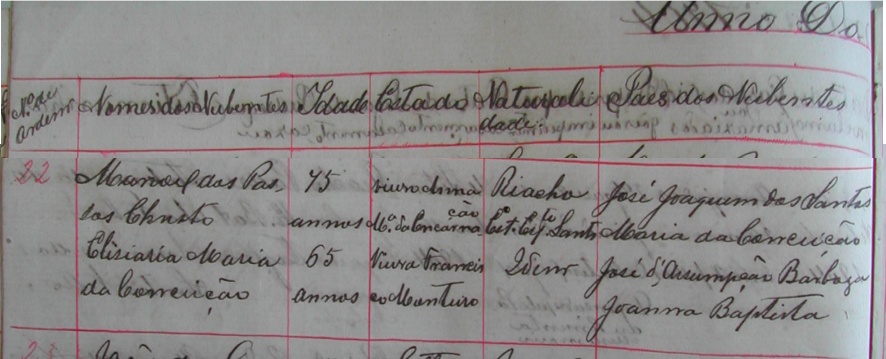 Anno Do
Nº de Ordem Nomes dos Nubentes Idade Estado Naturali Paes dos Nubentes
dade
22 Manoel dos Pas 75 viuvo de Riacho José Joaquim dos Santos
sos Christo annos Mª da Encarna ção Est. Espº Santo Maria da Conceição
Elisiaria Maria 65 Viuva Francis Idem José d'Assumpção Barboza
da Conceição annos co Monteiro Joanna Baptista